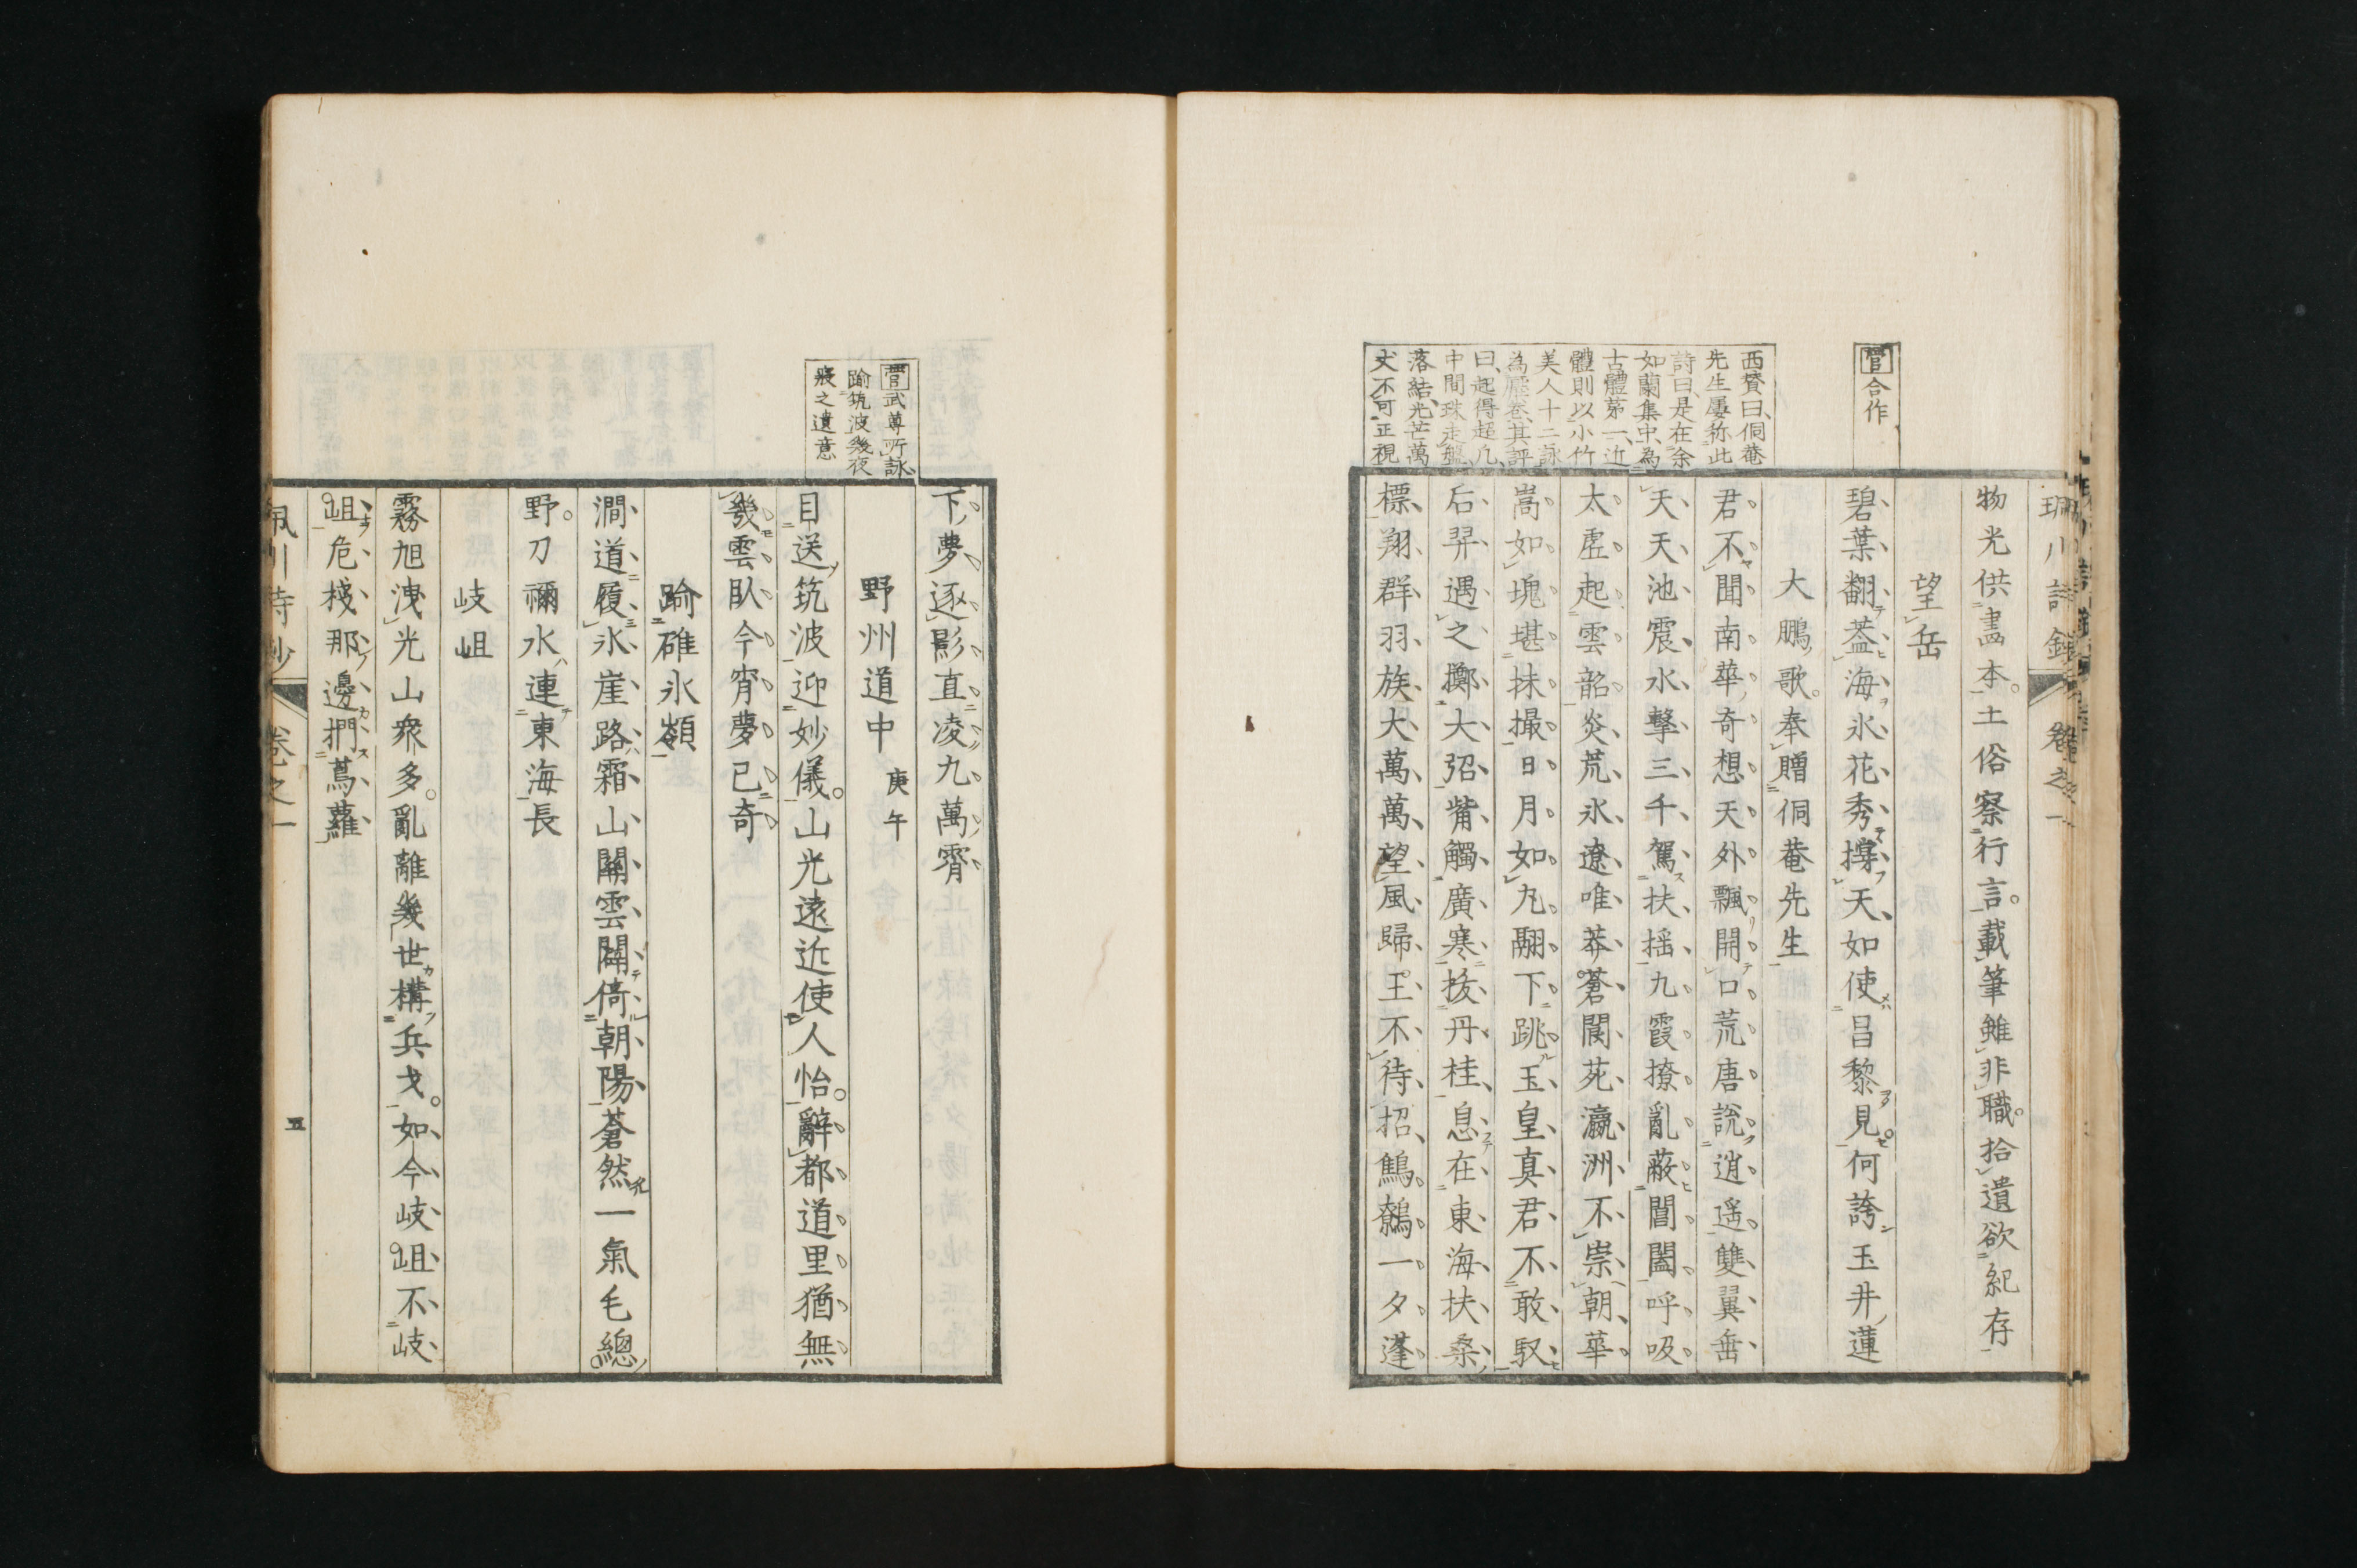 物光供畫本土俗察行言載筆雖非職拾遺欲紀存
望岳
碧葉翻葢海氷花秀撐天如使昌黎見何誇玉井蓮
大鵬歌奉贈侗菴先生
君不聞南華奇想天外飄開口荒唐說逍遥雙翼垂
天天池震水擊三千駕扶揺九霞撩亂蔽閶闔呼吸
太虛起雲韶炎荒氷遼唯莽蒼閬苑瀛洲不崇朝華
嵩如塊堪抹撮日月如丸翮下跳玉皇真君不敢馭
后羿遇之擲大弨觜觸廣寒拔丹桂息在東海扶桑
標翔群羽族大萬萬望風歸王不待招鷦鷯一夕蓬
菅合作
西賛曰侗菴
先生屢称此
詩曰是在余
如蘭集中為
古體第一近
體則以小竹
美人十二詠
為壓卷其評
曰起得超凡
中間珠走盤
落結光芒萬
丈不可正視
下夢逐影直凌九萬霄
野州道中 庚午
目送筑波迎妙儀山光遠近使人怡辭都道里猶無
幾雲臥今宵夢已奇
踰碓氷嶺
澗道履氷崖路霜山關雲闢倚朝陽蒼然一氣毛總
野刀禰水連東海長
岐岨
霧旭洩光山衆多亂離幾世構兵戈如今岐岨不岐
岨危棧那邊捫蔦蘿
菅武尊所詠
踰筑波幾夜
寢之遺意
卷之一
五